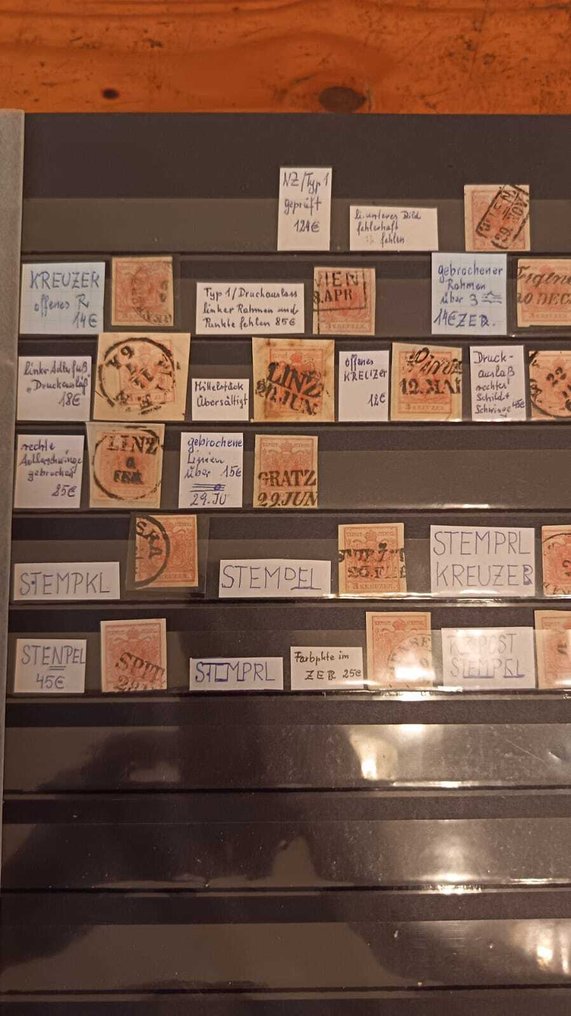 NZ/Typ 1
geprüft
121€
li. unteres Bild
fehlerhaft
fehlen
KREUZER
offenes R
14€
Typ 1/Druckausfass
linker Rahmen und
Punkte fehlen 85€
WIEN
8.APR
gebrochener
Rahmen
über 3
14€ ZER.
10 DEC
linke Adlerfuß
"Druckauslaß"
18€
Mittelstück
übersättigt
LINZ
20.JUN.
offenes
KREUZER
12€
12.MAI
Druck-
auslaß
rechtes
Schild+
Schwinge 45€
22
rechte
Adlerschwinge
gebrochen
85€
LINZ
6
FEB.
gebrochene
Linien
über 15€
29.JU
GRATZ
29.JUN
SKA
STEMPKL
STEMPEL
STEMPRL
KREUZER
STENPEL
45€
SPIT
STOMPRL
Farbpkte im
ZER 25€
STEMPEL